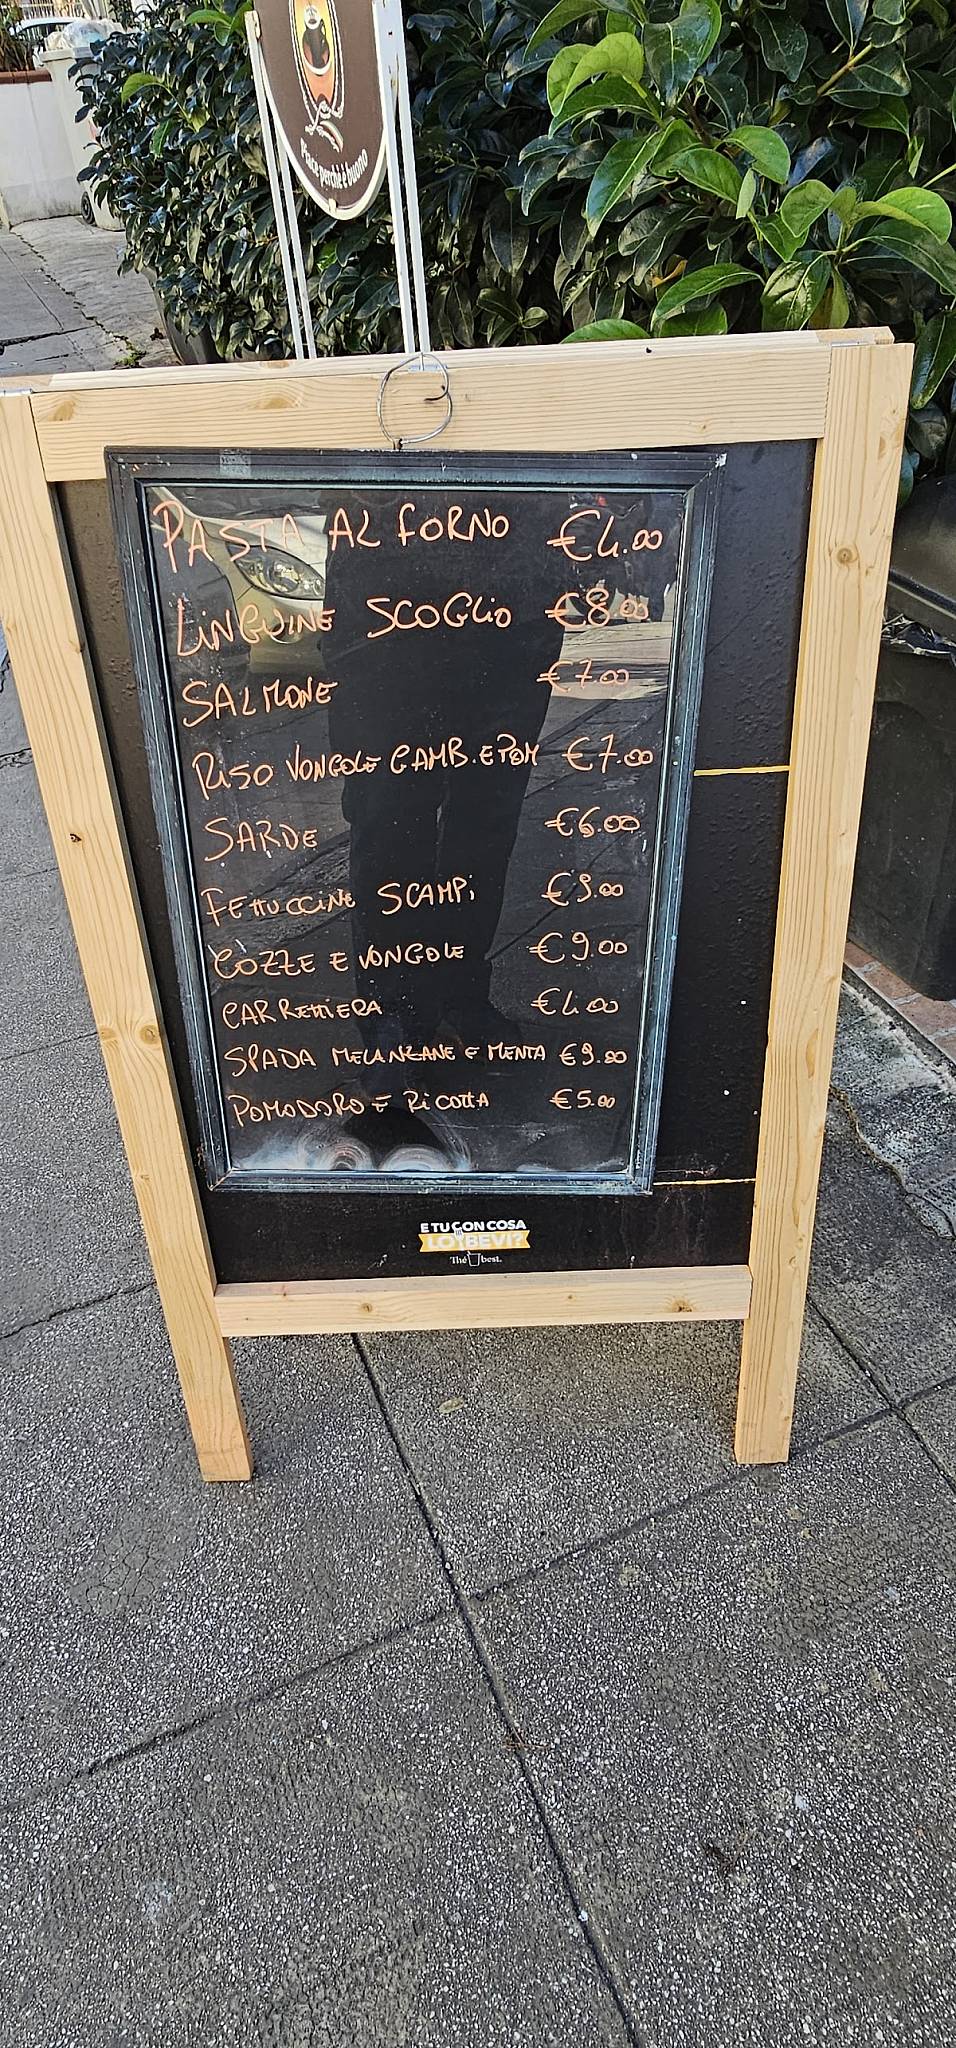 Piace perchè è buono
PASTA AL FORNO €4.00
LINGUINE SCOGLIO €8.00
SALMONE €7.00
RISO VONGOLE GAMB. E POM €7.00
SARDE €6.00
FETTUCCINE SCAMPI €9.00
COZZE E VONGOLE €9.00
CARRETTIERA €4.00
SPADA MELANZANE E MENTA €9.00
POMODORO E RICOTTA €5.00
E TU CON COSA
LO BEVI?
Thé best.